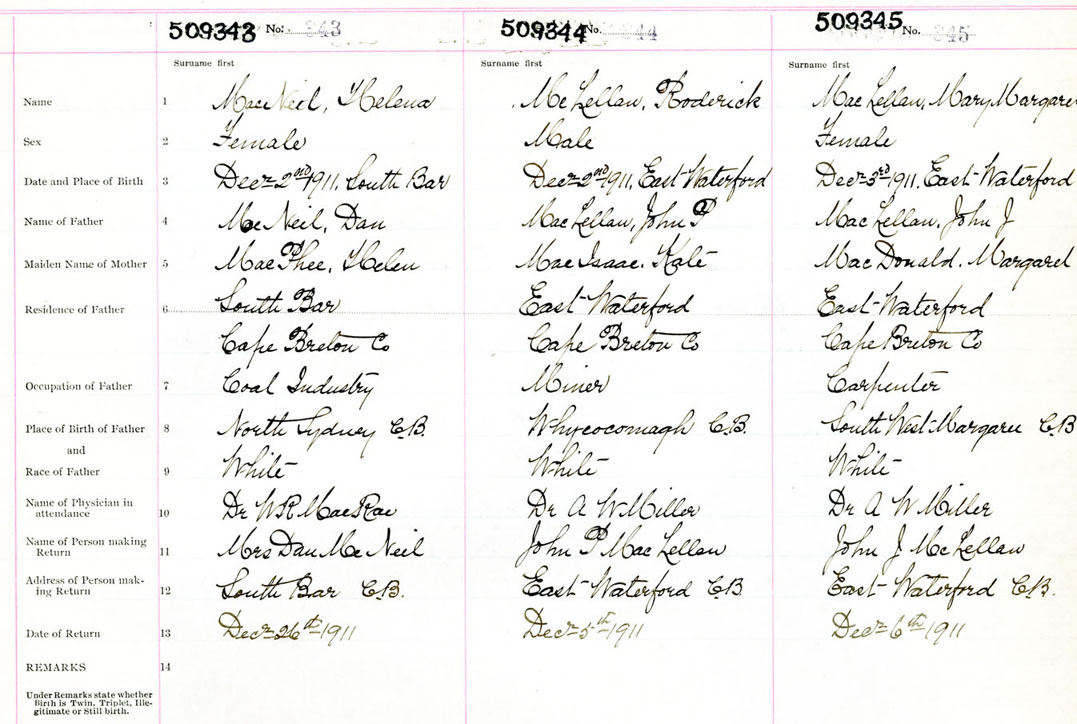 509343 No. 343 509344 No. 344 509345 No. 345
Surname first Surname first Surname first
Name 1 MacNeil, Helena McLellan, Roderick MacLellan, Mary Margaret
Sex 2 Female Male Female
Date and Place of Birth 3 Decr 2nd 1911, South Bar Decr 2nd 1911, East Waterford Decr 3rd 1911, East Waterford
Name of Father 4 MacNeil, Dan MacLellan, John P MacLellan, John J
Maiden Name of Mother 5 MacPhee, Helen MacIsaac, Kate MacDonald, Margaret
Residence of Father 6 South Bar East Waterford East Waterford
Cape Breton Co Cape Breton Co Cape Breton Co
Occupation of Father 7 Coal Industry Miner Carpenter
Place of Birth of Father 8 North Sydney C.B. Whycocomagh C.B. South West Margaree C.B
and
Race of Father 9 White White White
Name of Physician in
attendance 10 Dr W R MacRae Dr A W Miller Dr A W Miller
Name of Person making
Return 11 Mrs Dan McNeil John P MacLellan John J McLellan
Address of Person mak-
ing Return 12 South Bar C.B. East Waterford C.B East Waterford C.B.
Date of Return 13 Decr 26th 1911 Decr 5th 1911 Decr 6th 1911
REMARKS 14
Under Remarks state whether
Birth is Twin, Triplet, Ille-
gitimate or Still birth.